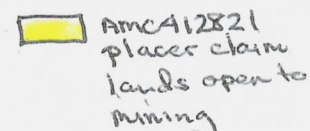 AMC412821
placer claim
lands open to
mining